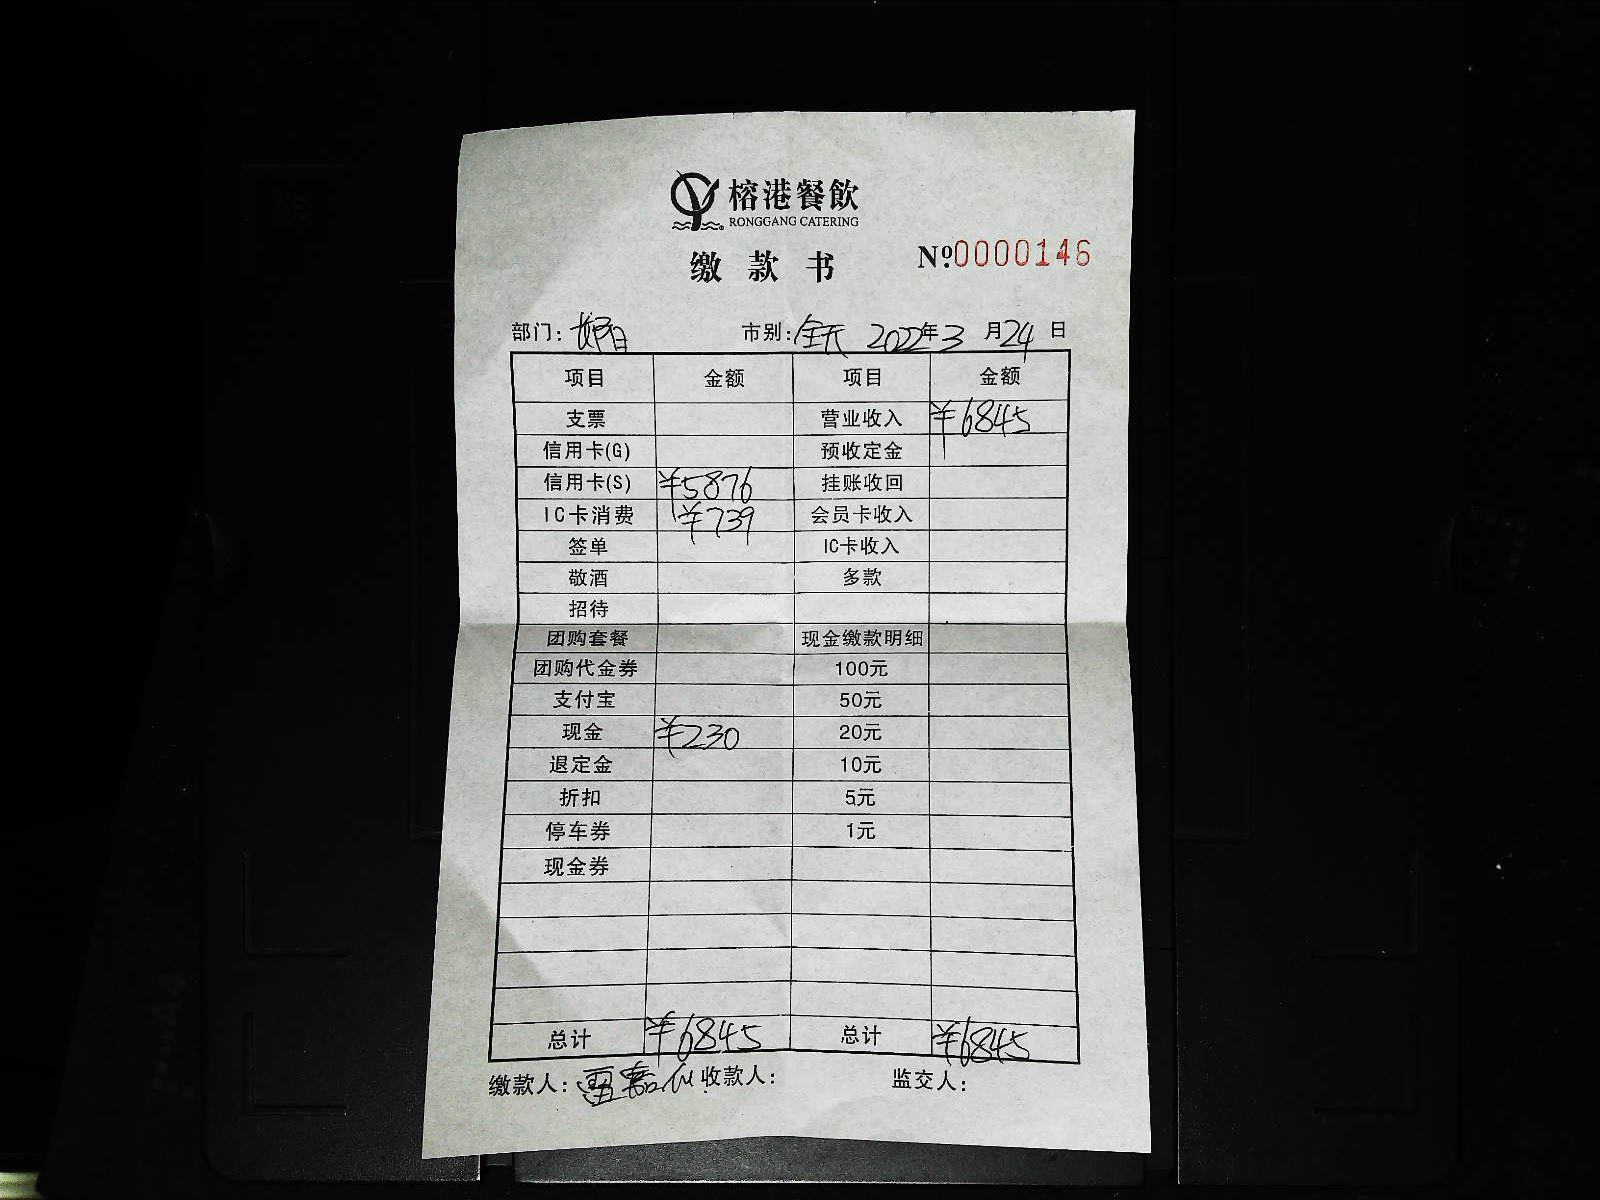 榕港餐飲
RONGGANG CATERING
缴款书 №0000146
部门: 市别:全天 2022年3月24日
项目 金额 项目 金额
支票 营业收入 ¥6845
信用卡(G) 预收定金
信用卡(S) ¥5876 挂账收回
IC卡消费 ¥739 会员卡收入
签单 IC卡收入
敬酒 多款
招待
团购套餐 现金缴款明细
团购代金券 100元
支付宝 50元
现金 ¥230 20元
退定金 10元
折扣 5元
停车券 1元
现金券
总计 ¥6845 总计 ¥6845
缴款人: 收款人: 监交人: